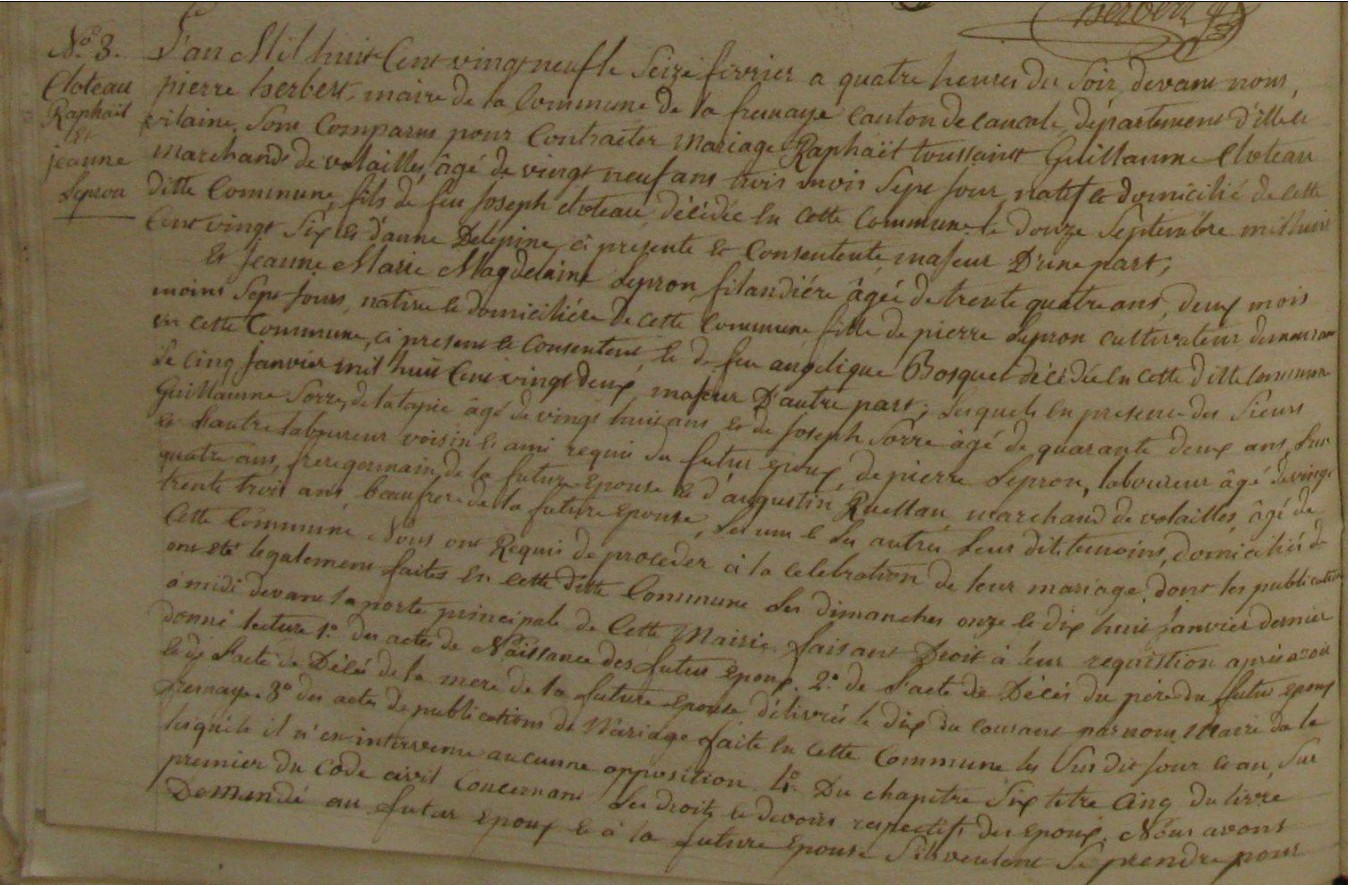 herbert
N.º 3.
Cloteau
Raphaët
Et
jeanne
Lepron
L'an Mil huit Cent vingt neuf le Seize fevrier a quatre heures du Soir, devant nous,
pierre herbert, maire de la Commune de la fresnaye canton de Cancale, département d'ille et
vilaine, Sont Comparus pour Contracter Mariage Raphaët toussaint Guillaume Cloteau
Marchand de volailles, âgé de vingt neuf ans trois mois Sept jour, natif et domicilié de cette
ditte Commune, fils de feu Joseph Cloteau, décédée En cette Commune le douze Septembre mil huit
Cent vingt Six et d'anne Delepine, ci presente et Consentente majeur D'une part,
Et Jeanne Marie Magdelaine Lepron filandiére âgée de trente quatre ans, deux mois
moins Sept jours, native et domiciliére de cette Commune fille de pierre Lepron cultivateur demeurant
en cette Commune, ci present et Consentent et de feu angelique Bosquet décédée En cette ditte Commune
Le cinq janvier mil huit Cent vingt deux, majeur D'autre part; Lesquels En presence des Sieurs
Guillaumme Sorre, de la tapie âgé de vingt huit ans et de joseph Sorre âgé de quarante deux ans, L'un
et L'autre laboureur voisin et ami requis du futur Epoux, de pierre Lepron, laboureur âgé de vingt
quatre ans, frere germain, de la future Epouse et d'augustin Ruellau, marchand de volailles, âgé de
trente trois ans beaufrere de la future Epouse, Les uns et Les autres Leur dit temoins, domiciliés de
Cette Commune Nous ont Requis de proceder à la celebration de leur mariage, dont les publications
ont été legalement faites En cette ditte Commune Les dimanches onze et dix huit janvier dernier
à midi devant la porte principale de Cette Mairie. faisant Droit à leur requistion après avoir
donné lecture 1.º des actes de Naissance des futur Epoux. 2.º de L'acte de Décés du père du futur Epoux
et de L'acte de Décés de la mere de la future Epouse délivrés le dix du courant par nous Maire de la
fresnaye. 3º des actes de publications de Mariage faite En cette Commune les Sus dit jour et an, Sur
lesquels il n'en intervenue aucunne opposition. 4º. Du chapitre Six titre Cinq du livre
premier du Code civil Concernant Les droits et devoirs respectifs des Epoux. Nous avons
Demandé au futur Epoux et à la future Epouse S'ils veulent Se prendre pour